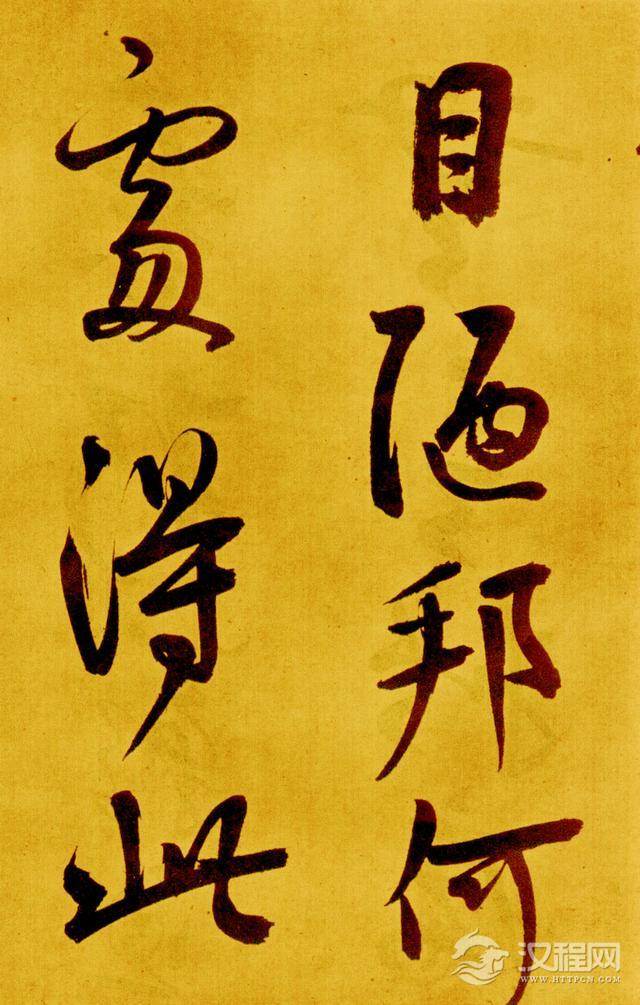 目陋邦何
處得此
汉程网
WWW.HTTPCN.COM